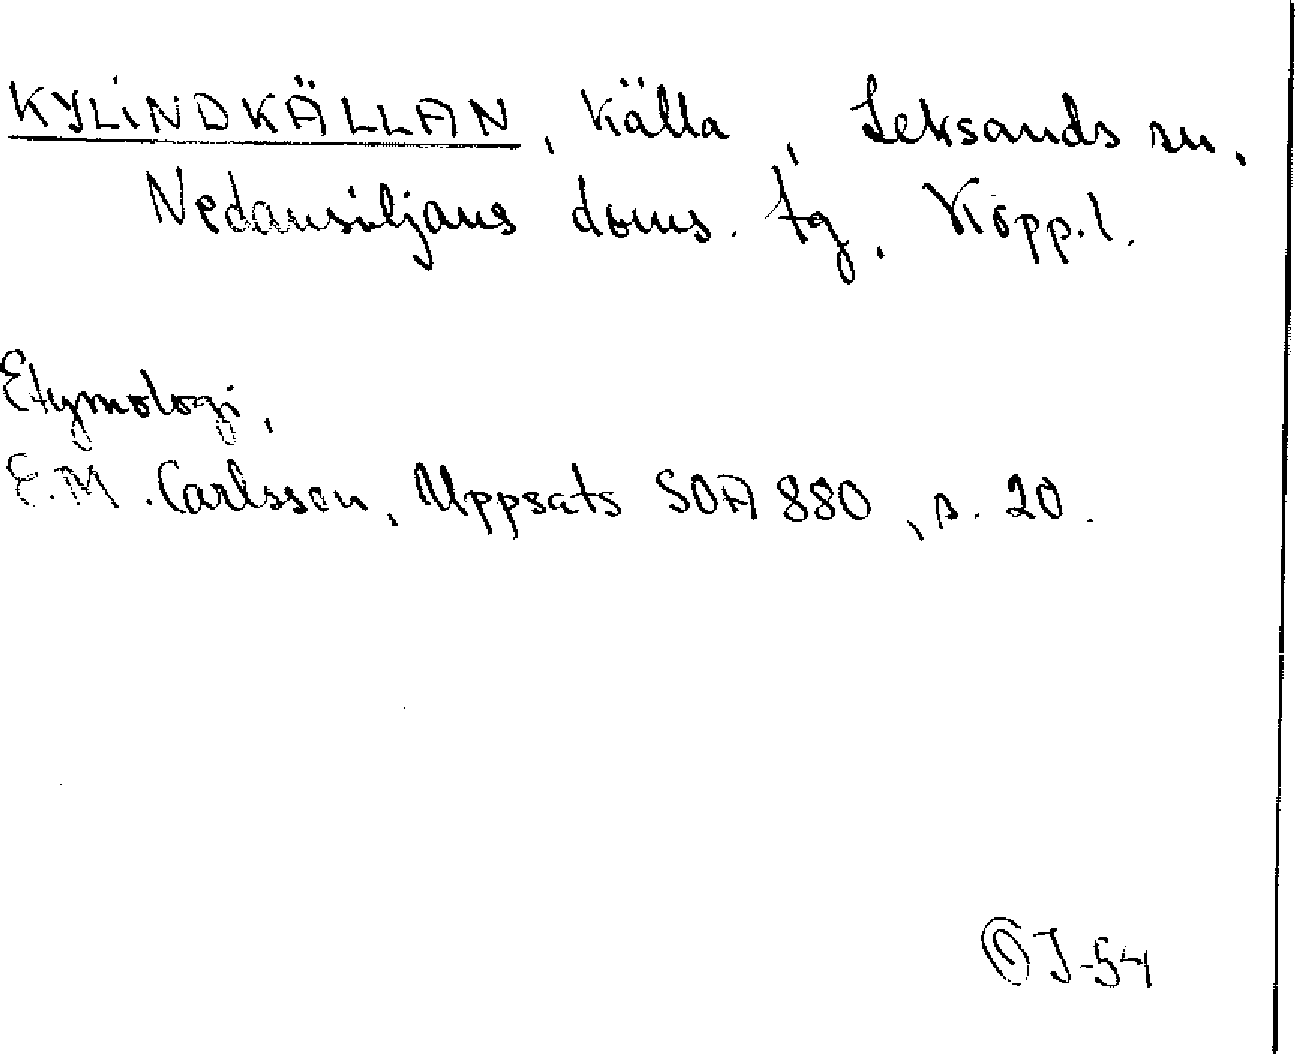 KYLINDKÄLLAN, källa, Leksands sn,
Nedansiljans doms. tg, Kopp.l.
Etymologi,
E.M. Carlsson, Uppsats SOA 880, s. 20.
OJ-54